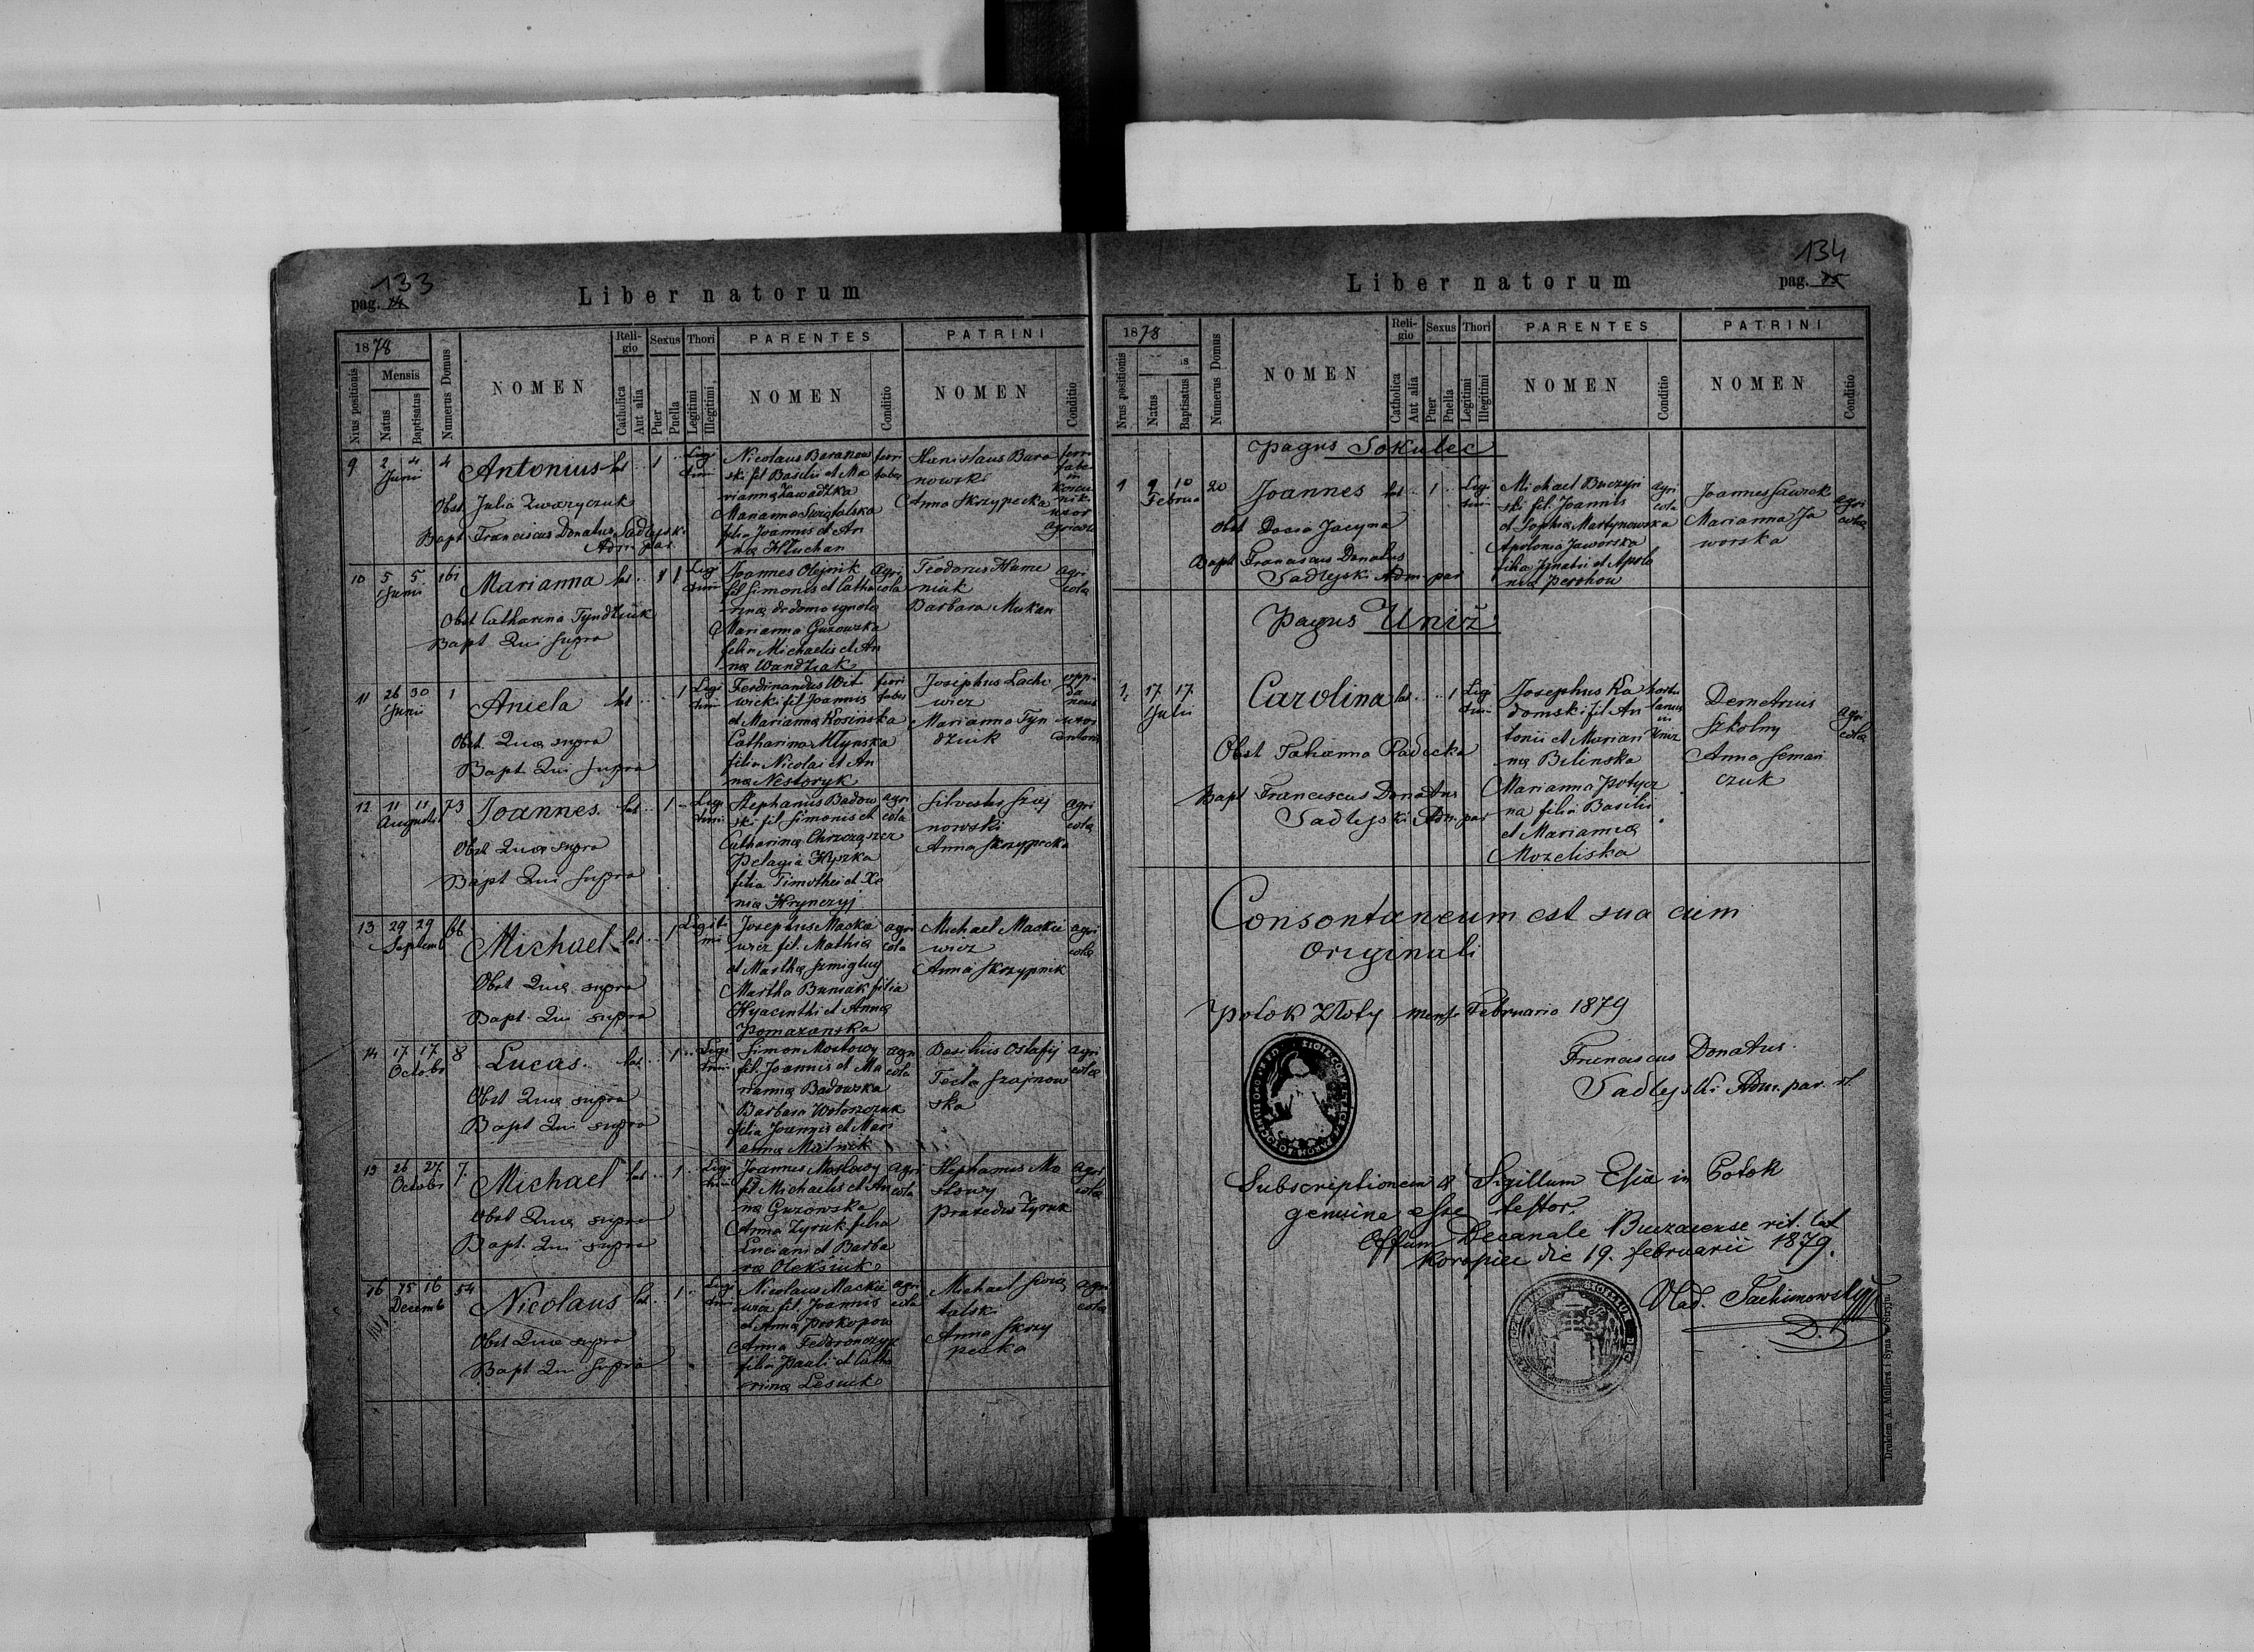 133
pag. 74
Liber natorum
1878
Nrus positionis
Mensis
Natus
Baptisatus
Numerus Domus
NOMEN
Religio
Catholica
Aut alia
Sexus
Puer
Puella
Thori
Legitimi
Illegitimi
PARENTES
NOMEN
Conditio
PATRINI
NOMEN
Conditio
9 2 4 Junii 4 Antonius lat 1 Legitimi
Obst Julia Zwaryczuk
Bapt Franciscus Donatus Sadlejski
Adm. par.
Nicolaus Baranow
ski fil Basilii et Ma
rianna Zawadzka
Marianna Swiatalska
filia Joannis et An
na Hluchan
ferri
faber
Stanislaus Bara
nowski
Anna Skrzypecka
10 5 5 Junii 161 Marianna lat 1 Leg
timi
Obst Catharina Tyndziuk
Bapt Qui supra
Joannes Olejnik
fil Simonis et Catha
rina de domo ignota
Marianna Guzowska
filia Michaelis et An
na Wandziak
agri
cola
Teodorus Hume
niuk
Barbara Mukan
agri
cola
11 26 30 Junii 1 Aniela lat 1 Legi
timi
Obst. Quae supra
Bapt. Qui supra
Ferdinandus Wit
wicki fil Joannis
et Marianna Kosinska
Catharina Mlynska
filia Nicolai et An
na Nestoryk
ferri
faber
Josephus Lache
wicz
Marianna Tyn
dziuk
12 11 11 Augusti 73 Joannes. lat 1 Legi
timi
Obst Quae supra
Bapt Qui supra
Stephanus Badow
ski fil Simonis et
Catharina Chrzcząszcz
Pelagia Hyszka
filia Timothei et Xe
nia Hrynczyj
agri
cola
Silvester Szaj
nowski
Anna Skrzypecka
agri
cola
13 29 29 Septemb 66 Michael lat 1 Legiti
mi
Obst Quae supra
Bapt. Qui supra
Josephus Mackie
wicz fil. Mathia
et Martha Szmigluj
Martha Buniak filia
Hyacinthi et Anna
Pomazanska
agri
cola
Michael Mackie
wicz
Anna Skrzypnik
agri
cola
14 17 17 Octobr 8 Lucas. lat. 1 Legi
timi
Obst Quae supra
Bapt Qui supra
Simon Mostowy
fil. Joannis et Ma
rianna Badowska
Barbara Woloszczuk
filia Joannis et Mari
anna Melnik
agri
cola
Basilius Ostafij
Tecla Szajnow
ska
agri
cola
15 26 27 Octobr 7. Michael lat 1 Legi
timi
Obst Quae supra
Bapt. Qui supra
Joannes Mostowy
fil Michaelis et An
na Guzowska
Anna Zyruk filia
Luciani et Barba
ra Oleksiuk
agri
cola
Stephanus Mo
stowy
Praxedis Zyruk
agri
cola
16 15 16 Decemb 54 Nicolaus lat. 1 Legi
timi
Obst Quae supra
Bapt Qui supra
Nicolaus Mackie
wicz fil. Joannis
et Anna Prokopow
Anna Fedoronczyk
filia Pauli et Catha
rina Lesiuk
agri
cola
Michael Swia
talski
Anna Skrzy
pecka
agri
cola
134
pag. 75
Liber natorum
1878
Nrus positionis
Natus
Baptisatus
Numerus Domus
NOMEN
Religio
Catholica
Aut alia
Sexus
Puer
Puella
Thori
Legitimi
Illegitimi
PARENTES
NOMEN
Conditio
PATRINI
NOMEN
Conditio
Pagus Sokulec
1 9 10 Februa 20 Joannes lat 1 Legi
timi
Obst Docia Jacyna
Bapt Franciscus Donatus
Sadlejski Adm. par
Michael Buczyn
ski fil. Joannis
et Sophia Martynowska
Apolonia Jaworska
filia Ignatii et Apolo
nia Perohow
agri
cola
Joannes Sawrok
Marianna Ja
worska
agri
cola
Pagus Uniż
1. 17. 17. Julii Carolina lat 1 Legi
timi
Obst Tatianna Radecka
Bapt Franciscus Donatus
Sadlejski Adm. par
Josephus Ka
domski fil An
tonii et Marian
na Bilinska
Marianna Potycz
na filia Basilii
et Marianna
Mozeliska
hortu
lanus
in
Uniz
Demetrius
Szkolny
Anna Seman
czuk
agri
cola
Consontaneum est sua cum
Originali
Potok Złoty mense Februario 1879
Franciscus Donatus
Sadlejski Adm. par. rl.
Subscriptionem & Sigillum Esiæ in Potok
genuine esse testor.
Offum Decanale Buczacense rit. lat
Koropiec die 19. februarii 1879.
Vlad. Sachimowskyj
D.
Drukiem A. Müllera i Syna w Stryju.